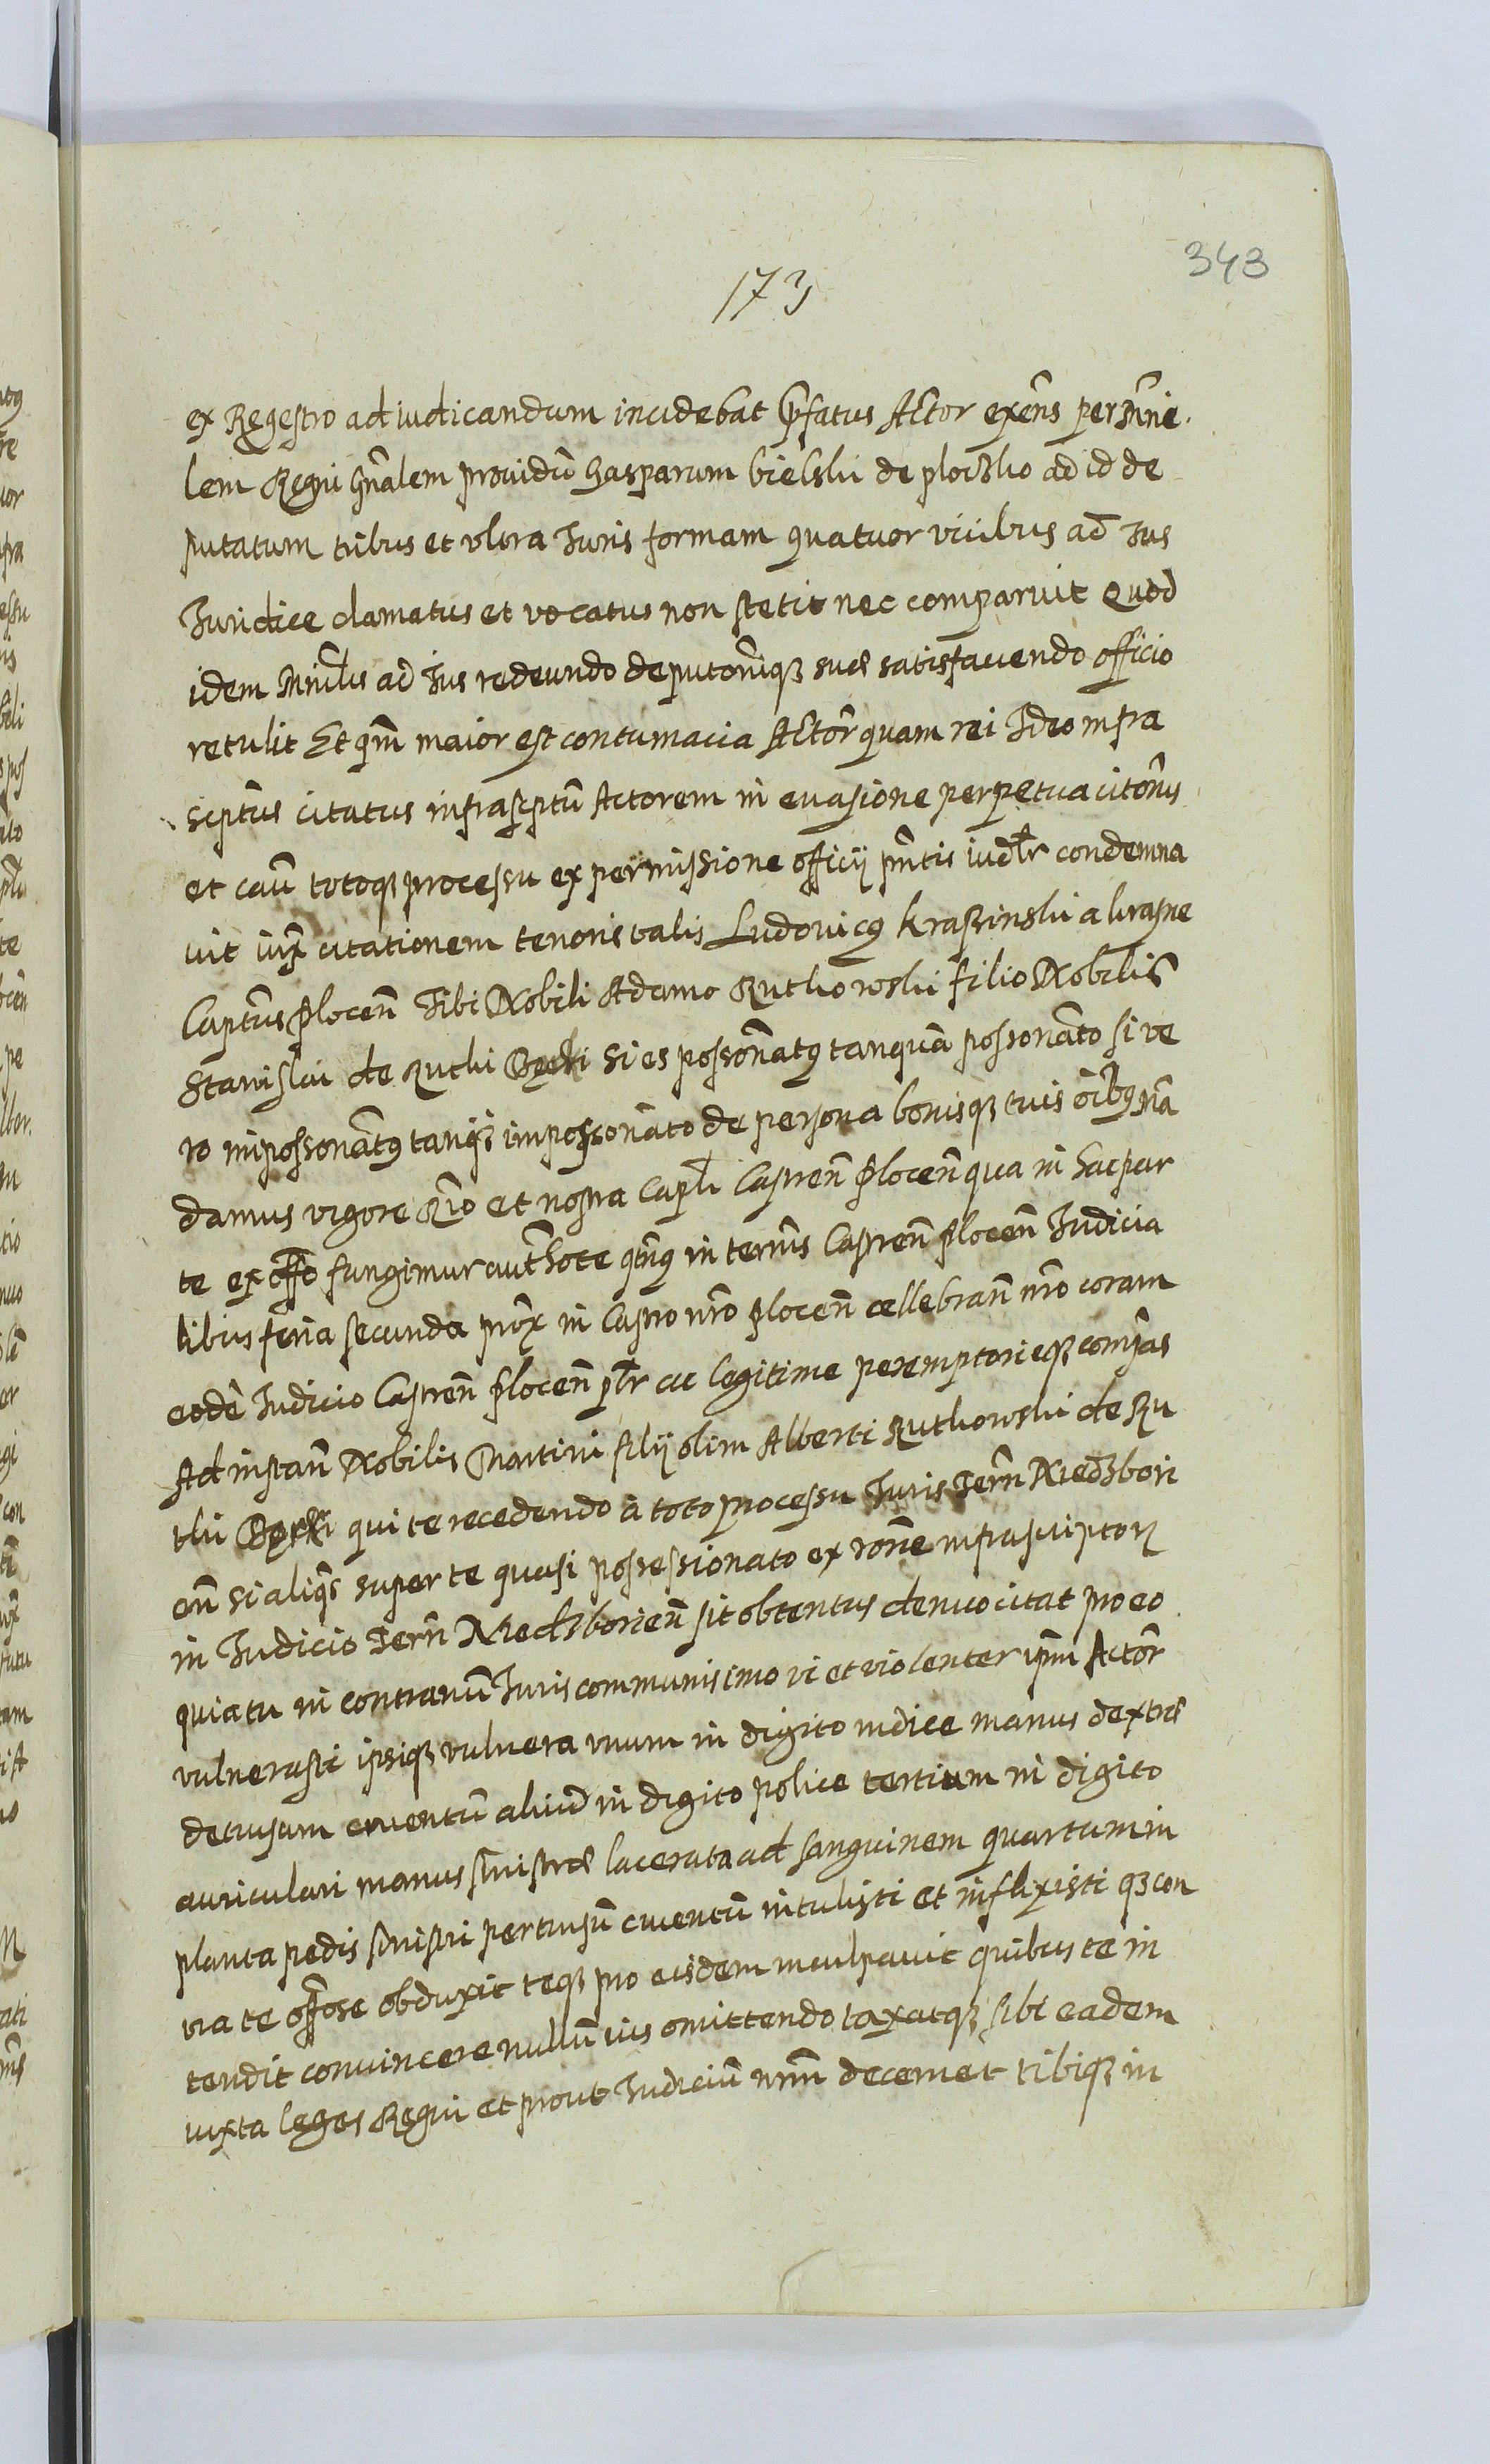 343
173
ex Regestro ad iudicandum incidebat Prfatus Actor exens per Minie
lem Regni Gnalem prouidu Gasparum bielski de ploczko ad id de
putatum tribus et vltra Juris formam quatuor vicibus ad Jus
Juridice clamatus et vocatus non stetit nec comparuit Quod
idem Minlis ad Jus redeundo deputoniq3 suæ satisfaciendo officio
retulit Et qm maior est contumacia Actor quam rei Ideo infra
sciptus citatus infrascptu Actorem in euasione perpetua citonis
et cau totoq3 processu ex permissione officij pntis iudlr condemna
uit iux citationem tenoris talis Ludouicq Krassinski a krasne
Captus Plocen Tibi Nobili Adamo Rutkowski filio Nobilis
Stanislai de Rutki si es possonatq tanqua possonato si ve
ro impossonatq tanq3 impossonato de persona bonisq3 tuis oibq Ma
damus vigore Rio et nostra Capli Castren Plocen qua in hac par
te ex offo fungimur authote qtnq in ternis Castren Plocen Judicia
libus feria secunda prox in Castro nro Plocen cellebran nro coram
eode Judicio Castren Plocen plr ac legitime peremptorieq3 compas
Ad instan Nobilis Martini filij olim Alberti Rutkowski de Ru
tki qui te recedendo à toto processu Juris Tern Niedzbori
en si aliqs super te quasi possessionato ex rone infrascriptor
in Judicio Tern Niedzborien sit obtentus denuo citat pro eo
quia tu in contrariu Juris communis imo vi et violenter ipm Actor
vulnerasti ipsiq3 vulnera vnum in digito indice manus dextræ
detusum cruentu aliud in digito police tertium in digito
auriculari manus sinistræ lacerata ad sanguinem quartum in
planta pedis sinistri pertusu cruentu intulisti et inflixisti q3 con
tra te offose obduxit teq3 pro eisdem inculpauit quibus te in
tendit conuincere nullu ius omittendo taxatq3 sibi eadem
iuxta leges Regni et prout Judiciu nrm decernet tibiq3 in